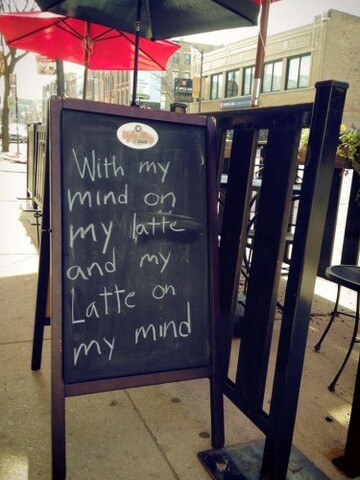 With my
mind on
my latte
and my
Latte on
my mind